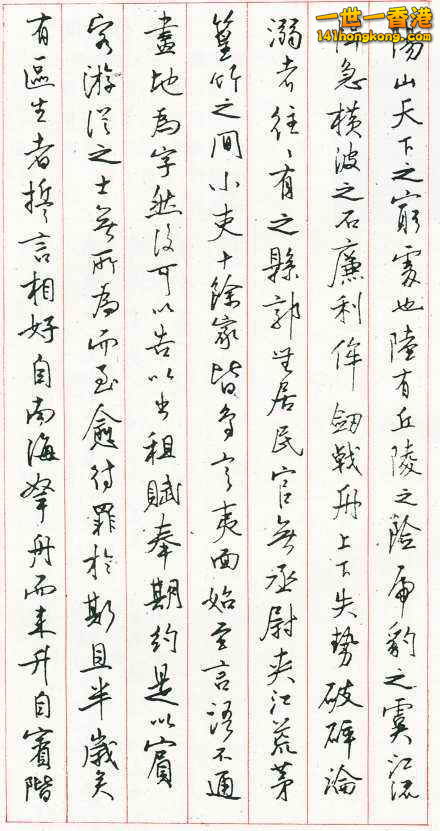 一世一香港
141hongkong.com
陽山天下之窮處也陸有丘陵之險虎豹之虞江流
悍急橫波之石廉利侔劒戟舟上下失勢破碎淪
溺者往〻有之縣郭無居民官無丞尉夾江荒茅
篁竹之間小吏十餘家皆鳥言夷面始至言語不通
畫地為字然後可以告以出租賦奉期約是以賓
客游從之士無所為而至愈待罪於斯且半歲矣
有區生者誓言相好自南海挐舟而來升自賓階